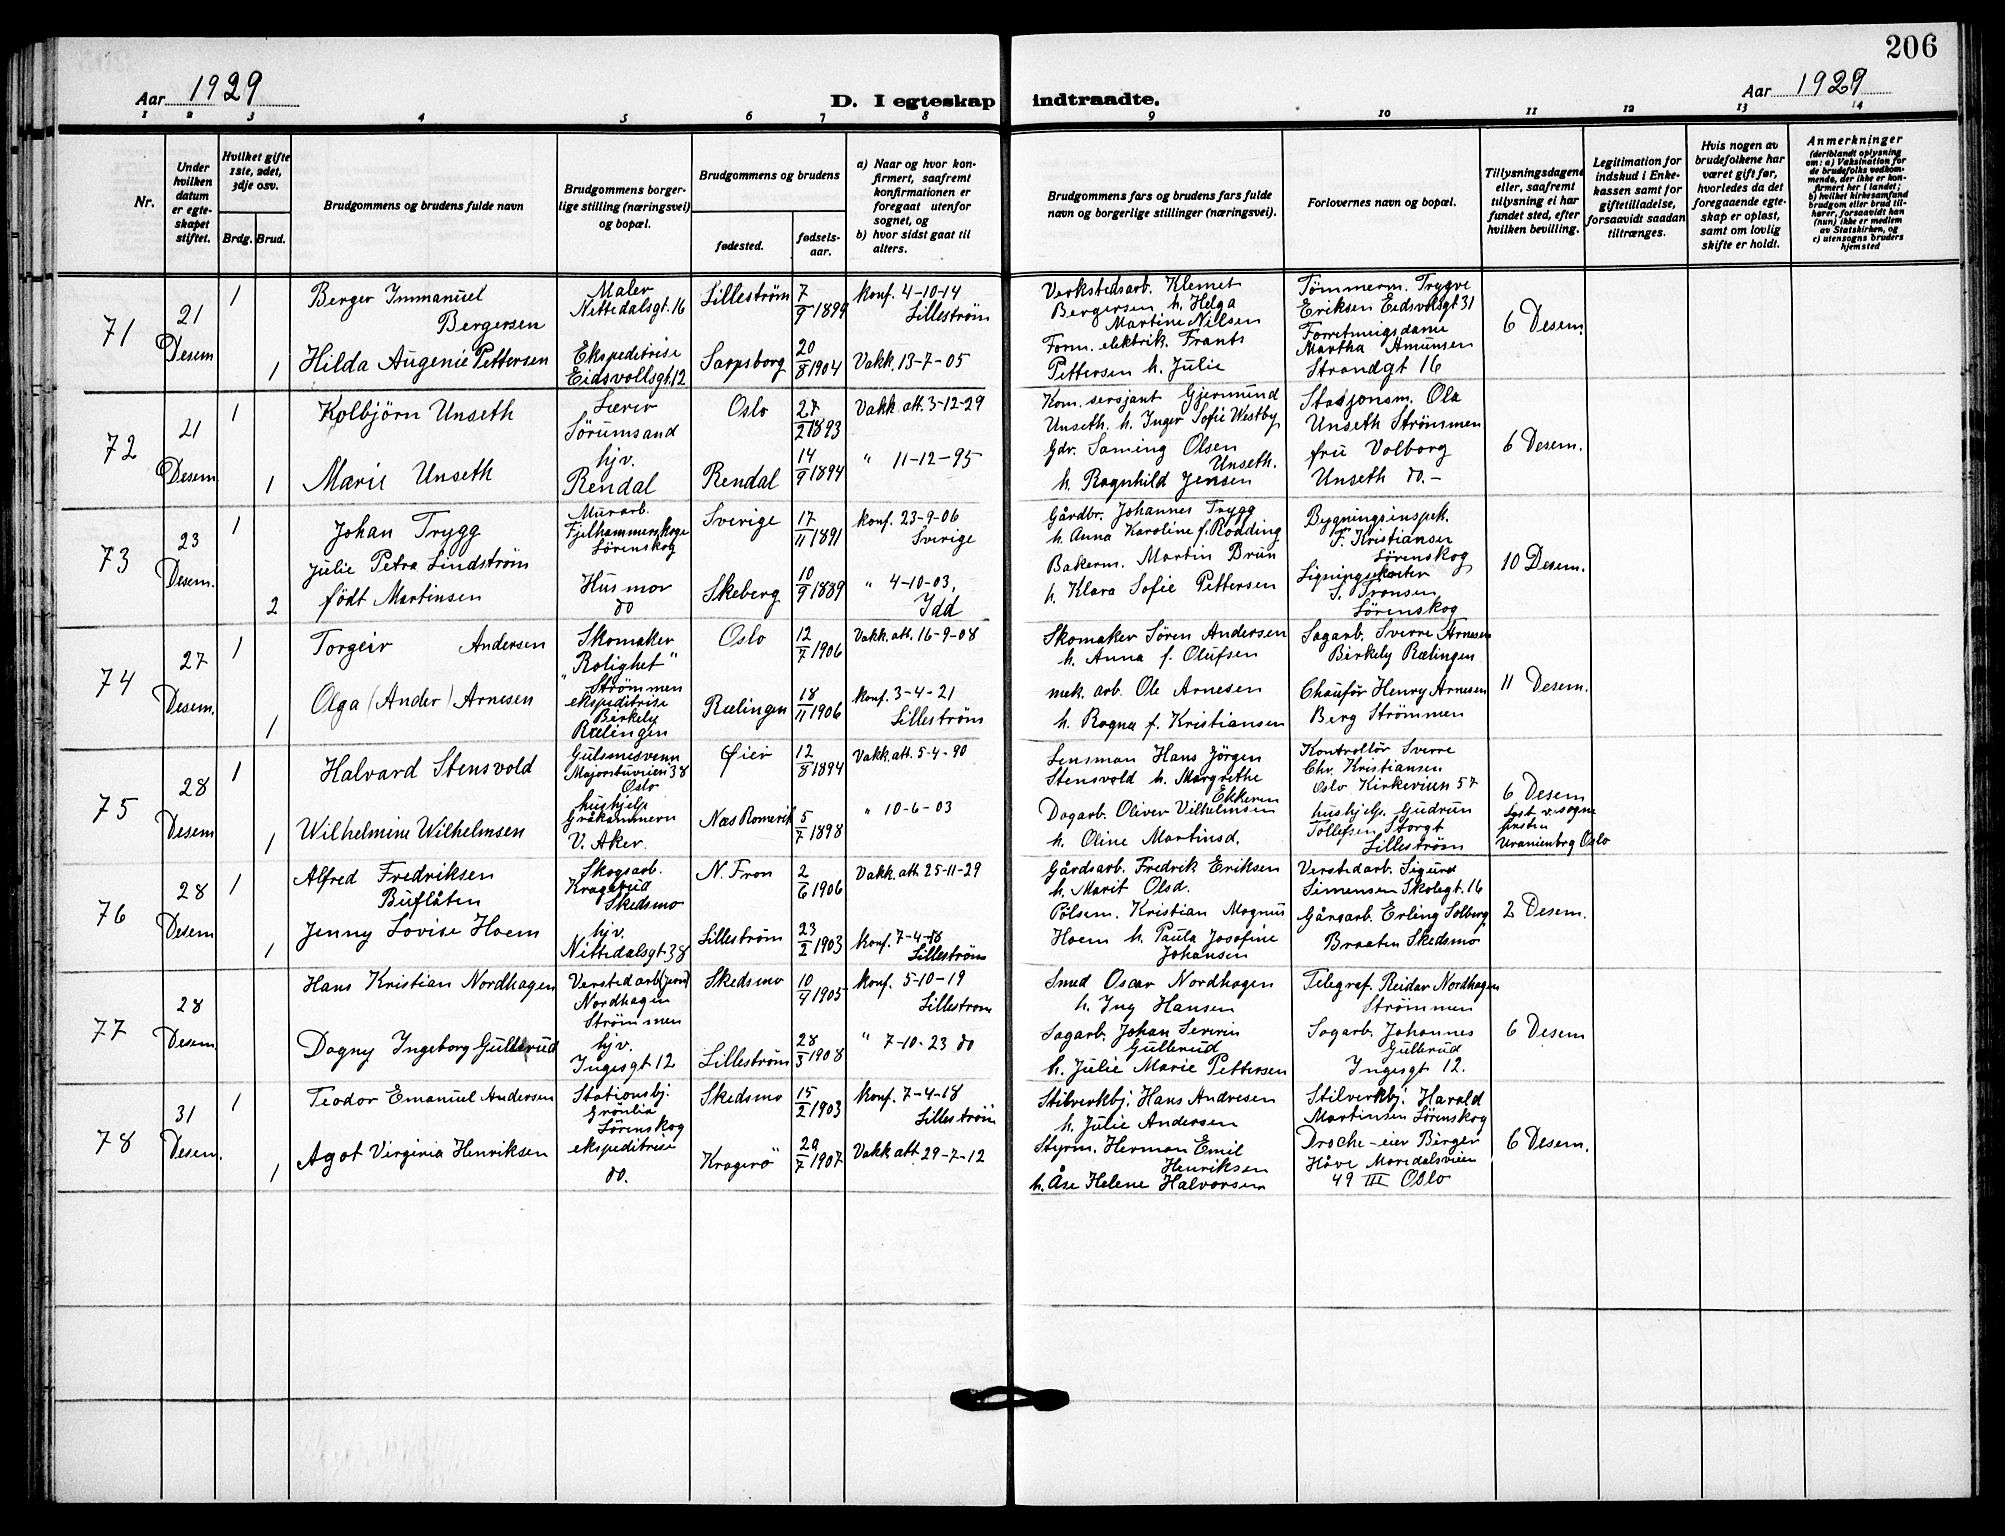 206
Aar 1929
D. I egteskap indtraadte.
Aar 1929
1 2 3 4 5 6 7 8 9 10 11 12 13 14
Nr.
Under hvilken datum er egteskapet stiftet.
Hvilket gifte 1ste, 2det, 3dje osv.
Brdg. Brud.
Brudgommens og brudens fulde navn
Brudgommens borgerlige stilling (næringsvei) og bopæl.
Brudgommens og brudens
fødested.
fødselsaar.
a) Naar og hvor konfirmert, saafremt konfirmationen er foregaat utenfor sognet, og
b) hvor sidst gaat til alters.
Brudgommens fars og brudens fars fulde navn og borgerlige stillinger (næringsvei).
Forlovernes navn og bopæl.
Tillysningsdagene eller, saafremt tillysning ei har fundet sted, efter hvilken bevilling.
Legitimation for indskud i Enkekassen samt for giftetilladelse, forsaavidt saadan tiltrænges.
Hvis nogen av brudefolkene har været gift før, hvorledes da det foregaaende egteskap er opløst, samt om lovlig skifte er holdt.
Anmerkninger
(deriblandt oplysning om: a) Vaksination for de brudefolks vedkommende, der ikke er konfirmert her i landet; b) hvilket kirkesamfund brudgom eller brud tilhører, forsaavidt han (hun) ikke er medlem av Statskirken, og c) utensogns bruders hjemsted
71
21 Desem
1
Berger Immanuel Bergersen
Maler Nittedalsgt. 16
Lilleström
7/9 1899
Konf. 4-10-14 Lilleström
Verkstedsarb. Klemet Bergersen h. Helga Martine Nilsen
Tømmerm. Trygve Eriksen Eidsvolsgt 31
6 Desem
1
Hilda Augenie Pettersen
Ekspeditrise Eidsvollsgt. 12
Sarpsborg
20/8 1904
Vakk. 13-7-05
Form. elektrik. Frants Pettersen h. Julie
Forretningsdame Martha Amunsen Strandgt 16
72
21 Desem.
1
Kolbjörn Unseth
Lærer Sörumsand
Oslo
27/2 1893
Vakk att. 3-12-29
Kom. sersjant Gjermund Unseth. h. Inger Sofie Westby
Stasjonsm. Ola Unseth Strömmen
6 Desem.
1
Marie Unseth
hjv. Rendal
Rendal
14/9 1894
" 11-12-95
Gdr. Saming Olsen Unseth. h. Ragnhild Jensen
fru Volborg Unseth do. -
73
23 Desem.
1
Johan Trygg
Murarb. Fjelhammerskoge Lörenskog
Sverige
17/11 1891
Konf. 23-9-06 Sverige
Gårdbr. Johannes Trygg h. Anna Karoline f. Rodding
Bygningsinspek. F. Kristiansen Lörenskog
10 Desem.
2
Julie Petra Lindström födt Martinsen
Husmor do
Skeberg
10/9 1889
" 4-10-03, Idd
Bakerm. Martin Brun h. Klara Sofie Pettersen
S. Tronsen Lörenskog
74
27 Desem.
1
Torgeir Andersen
Skomaker "Rolighet" Strömmen
Oslo
12/7 1906
Vakk. att. 16-9-08
Skomaker Sören Andersen h. Anna f. Olufsen
Sagarb. Sverre Arnesen Birkely Rælingen
11 Desem.
1
Olga (Ander) Arnesen
ekspeditrise Birkely Rælingen
Rælingen
18/11 1906
Konf. 3-4-21 Lilleström
mek. arb. Ole Arnesen h. Ragna f. Kristiansen
Chauför Henry Arnesen Berg Strömmen
75
28 Desem
1
Halvard Stensvold
Gulsmesvenn Majorstuveien 38 Oslo
Øier
12/8 1894
Vakk. att. 5-4-90
Lensman Hans Jörgen Stensvold h. Margrethe Ekkeren
Kontrollör Sverre Chr. Kristiansen Oslo Kirkeveien 57
6 Desem
Lyst v. sogneprsten Uranienbrg Oslo
1
Wilhelmine Wilhelmsen
hushjelp Gråkammern V. Aker.
Næs Romerik
5/7 1898
" 10-6-03
Dagarb. Oliver Vilhelmsen h. Oline Martinsd.
hushjelp. Gudrun Tollefsen Storgt Lilleström
76
28 Desem
1
Alfred Fredriksen Buflåten
Skogsarb. Kragerud Skedsmo
N. Fron
2/6 1906
Vakk. att. 25-11-29
Gårdsarb. Fredrik Eriksen h. Marit Olsd.
Verstedarb. Sigurd Simensen Skolegt. 16
2 Desem.
1
Jenny Lovise Hoem
hjv. Nittedalsgt. 38
Lilleström
23/2 1903
Konf. 7-4-18 Lilleström
Pölsem. Kristian Magnus Hoem h. Paula Josefine Johansen
Gårdsarb. Erling Solberg Braaten Skedsmo
77
28 Desem
Hans Kristian Nordhagen
Verstedarb (jern) Nordhagen Strömmen
Skedsmo
10/9 1905
Konf. 5-10-19 Lilleström
Smed Oscar Nordhagen h. Ing Hansen
Telegraf. Reidar Nordhagen Strömmen
6 Desem
Dagny Ingeborg Gullerud
hjv. Ingesgt 12
Lilleström
28/3 1908
" 7-10-23 do
Sagarb. Johan Severin Gullerud h. Julie Marie Pettersen
Sagarb. Johannes Gullerud Ingesgt 12.
78
31 Desem.
1
Teodor Emanuel Andersen
Stationsbj. Grönlia Lörenskog
Skedsmo
15/2 1903
Konf. 7-4-18 Lilleström
Stilverkbj. Hans Andresen h. Julie Andersen
Stilverkbj. Harald Martinsen Lörenskog
6 Desem.
1
Agot Virginia Henriksen
ekspeditrise do.
Kragerö
29/7 1907
Vakk att 29-7-12
Styrm. Herman Emil Henriksen h. Åse Helene Halvorsen
Drsche-eier Birger Håve Maridalsveien 49 III Oslo